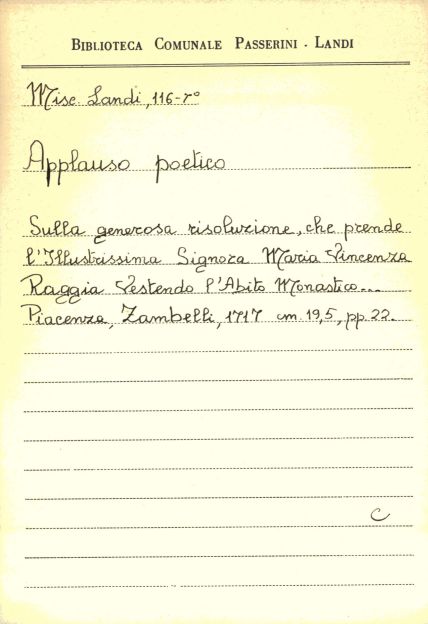 BIBLIOTECA COMUNALE PASSERINI - LANDI
Misc. Landi, 116-7°
Applauso poetico
Sulla generosa risoluzione, che prende
l'Illustrissima Signora Maria Vincenza
Raggia Vestendo l'Abito Monastico...
Piacenza, Zambelli, 1717 cm. 19,5, pp. 22.
C